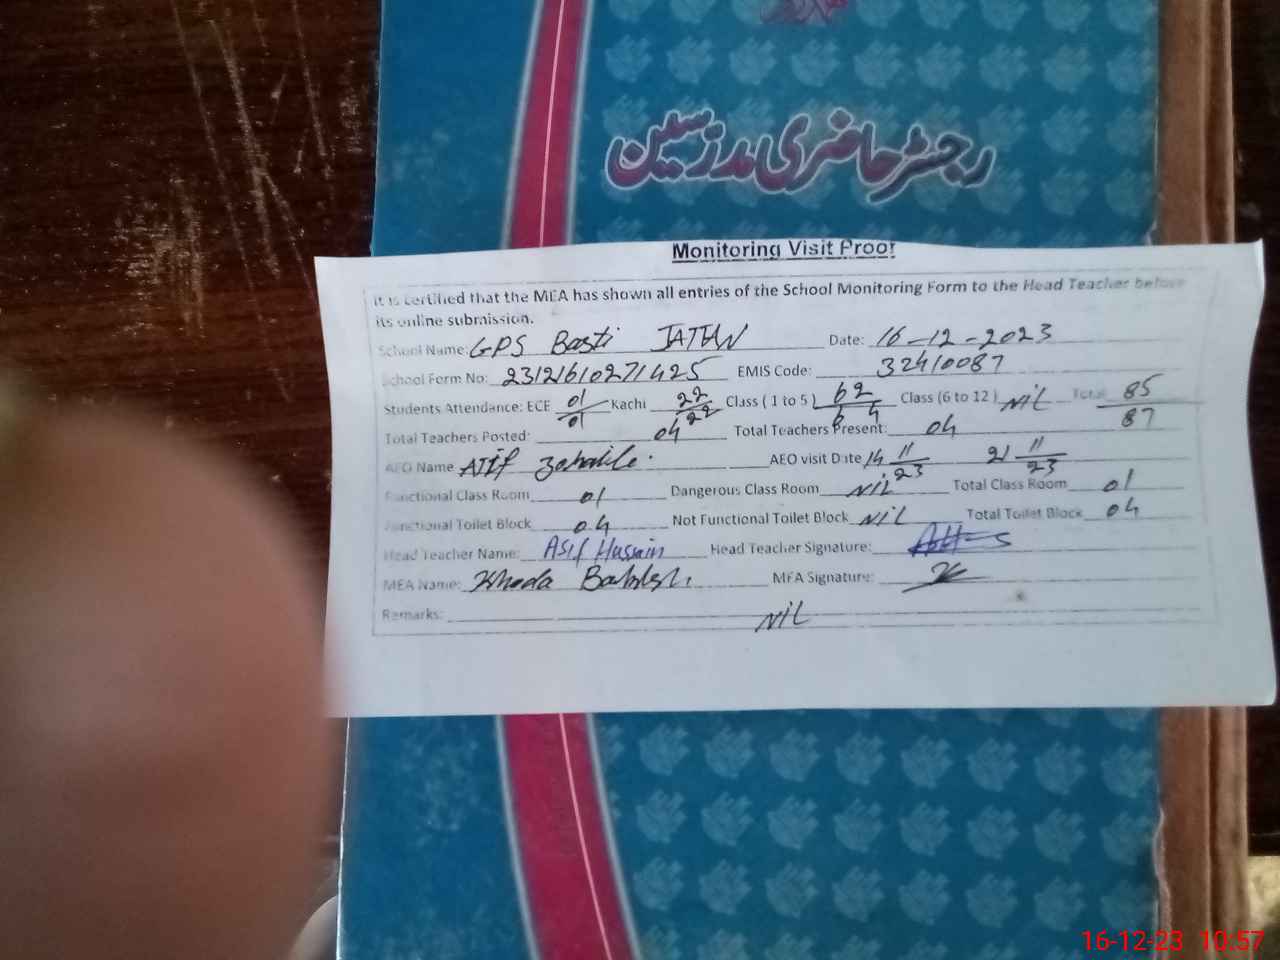 رجسٹر حاضری مدرسین
Monitoring Visit Proof
It is certified that the MEA has shown all entries of the School Monitoring Form to the Head Teacher before
its online submission.
School Name: GPS Basti JATTAN Date: 16-12-2023
School Form No: 23121610271425 EMIS Code: 32410087
Students Attendance: ECE 01/01 Kachi 22/22 Class ( 1 to 5 ) 62/64 Class (6 to 12 ) NIL Total 85/87
Total Teachers Posted: 04 Total Teachers Present: 04
AEO Name Atif AEO visit Date 14 11/23 21 11/23
Functional Class Room 01 Dangerous Class Room NIL Total Class Room 01
Functional Toilet Block 04 Not Functional Toilet Block NIL Total Toilet Block 04
Head Teacher Name: Asif Hussain Head Teacher Signature:
MEA Name: Khuda Bakhsh MEA Signature:
Remarks: NIL
16-12-23 10:57